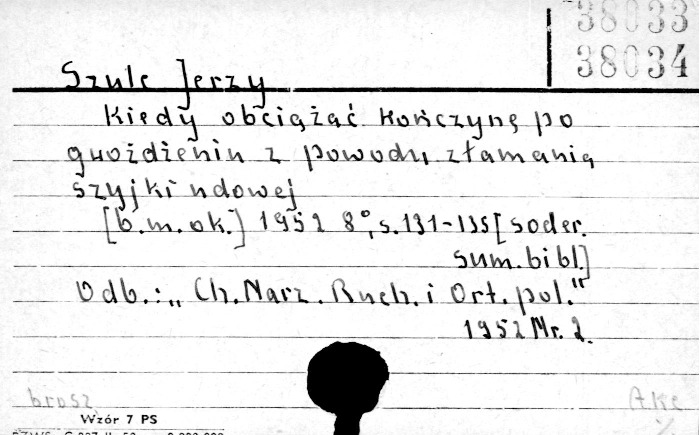 38033
38034
Szulc Jerzy
Kiedy obciążać kończynę po
gwoździeniu z powodu złamania
szyjki udowej
[b.m.ok.] 1952 8°, s.131-135 [soder.
sum.bibl.]
Odb.: „Ch. Narz. Ruch. i Ort. pol."
1952 Nr. 2.
brosz
Akc
Wzór 7 PS